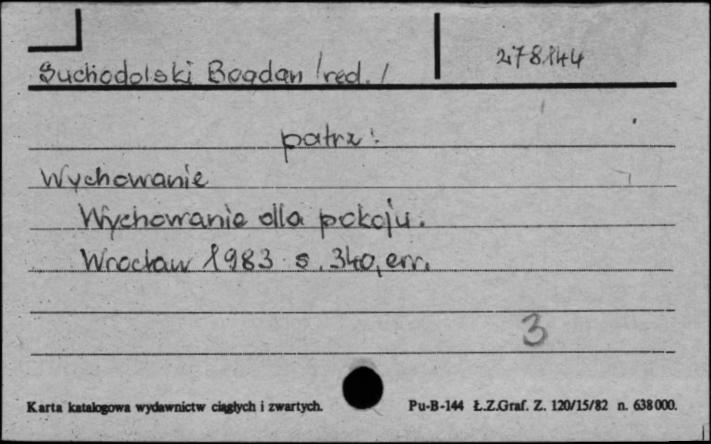 Suchodolski Bogdan /red./
278144
patrz:
Wychowanie
Wychowanie dla pokoju.
Wrocław 1983 s. 340, err.
3
Karta katalogowa wydawnictw ciągłych i zwartych.
Pu-B-144 Ł.Z.Graf. Z. 120/15/82 n. 638000.